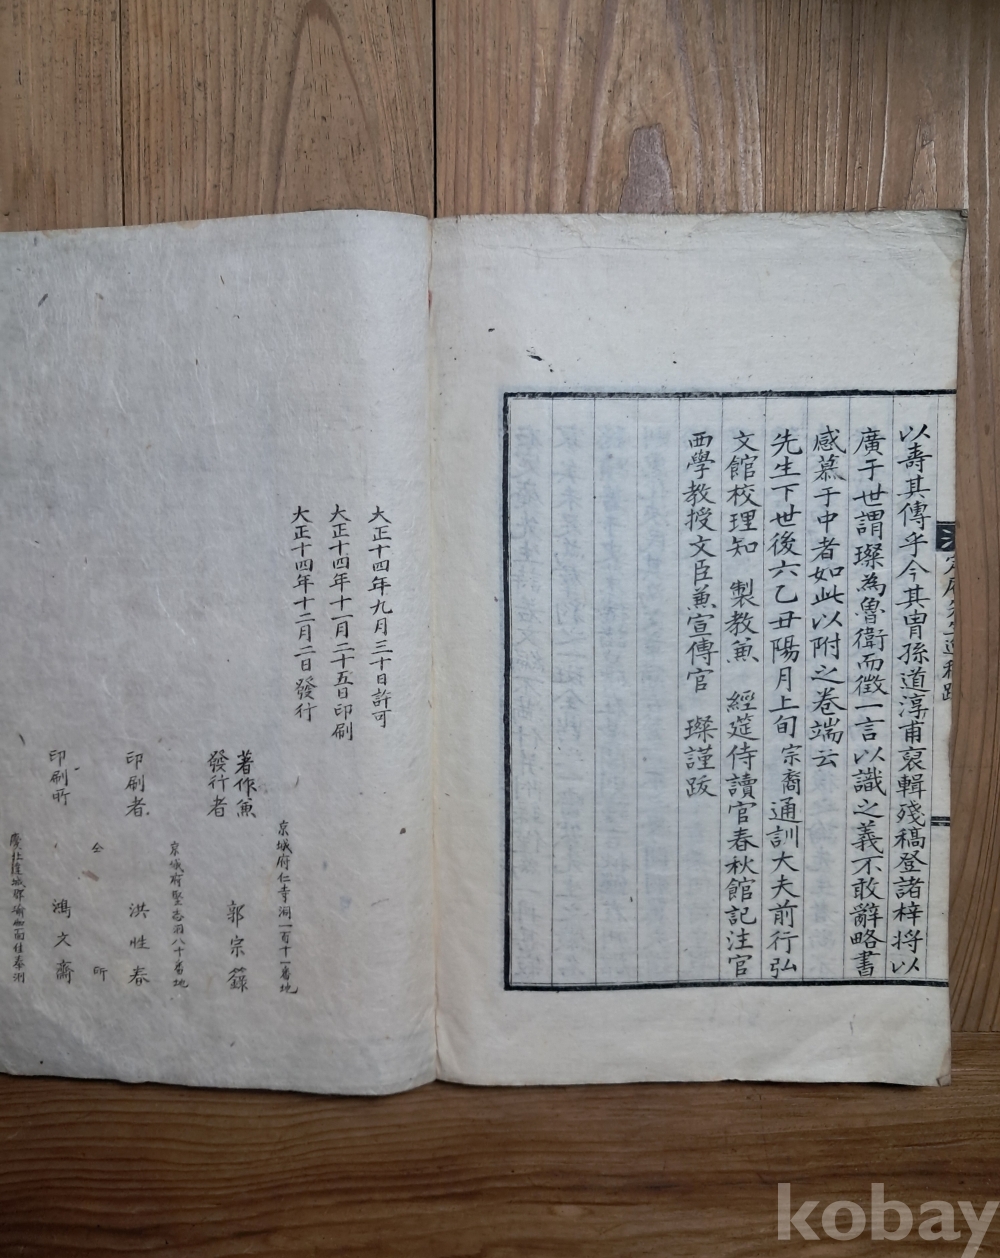 以壽其傳乎今其胄孫道淳甫裒輯殘稿登諸梓將以
廣于世謂璨為魯衛而徵一言以識之義不敢辭略書
感慕于中者如此以附之卷端云
先生下世後六乙丑陽月上旬宗裔通訓大夫前行弘
文館校理知 製教兼 經筵侍讀官春秋館記注官
西學教授文臣兼宣傳官 璨謹跋
大正十四年九月三十日許可
大正十四年十一月二十五日印刷
大正十四年十二月二日發行
京城府仁寺洞一百十一番地
著作兼
發行者 郭宗
京城府堅志洞八十番地
印刷者 洪性春
仝所
印刷所 鴻文齋
kobay